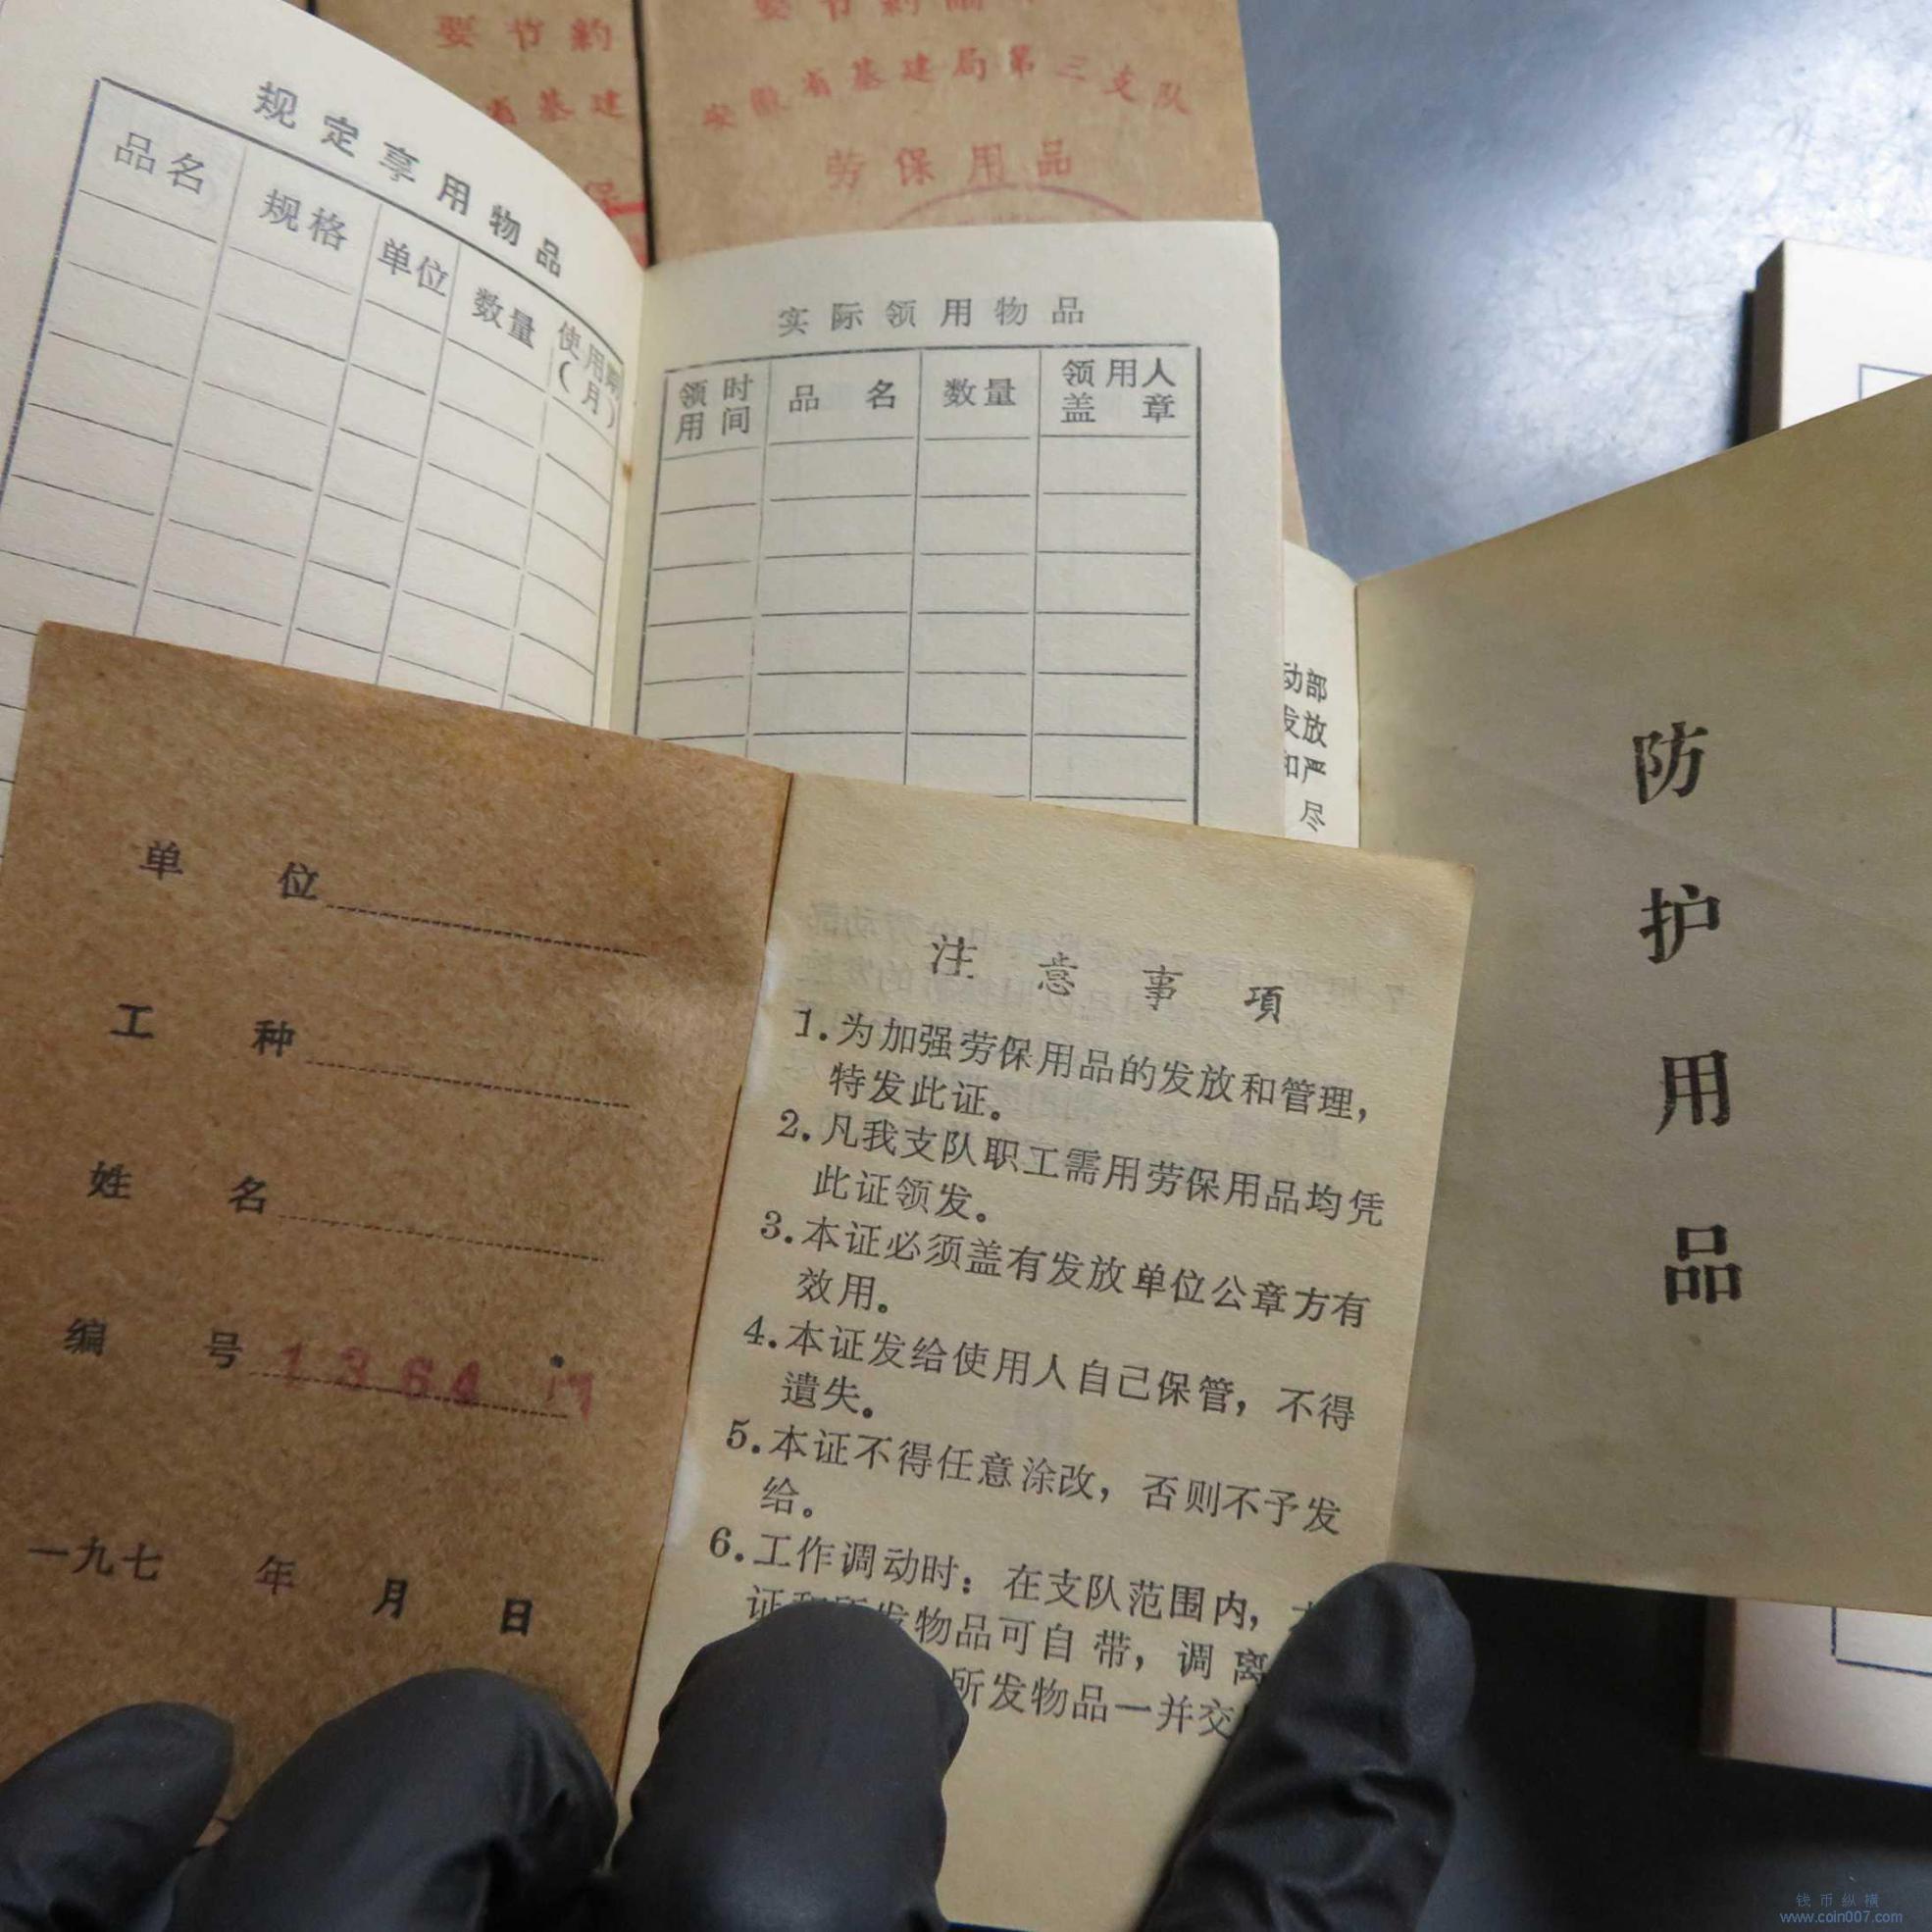 要节約
省基建
保
安徽省基建局第三支队
劳保用品
规定享用物品
品名 规格 单位 数量 使用期(月)
实际领用物品
领用时间 品名 数量 领用人盖章
动部
发放
和严
尽
防护用品
单位
工种
姓名
编号 1364
一九七 年 月 日
注意事項
1.为加强劳保用品的发放和管理,
特发此证。
2.凡我支队职工需用劳保用品均凭
此证领发。
3.本证必须盖有发放单位公章方有
效用。
4.本证发给使用人自己保管,不得
遺失。
5.本证不得任意涂改,否则不予发
给。
6.工作调动时:在支队范围内,
证和所发物品可自带,调离
所发物品一并交
钱币纵横
www.coin007.com